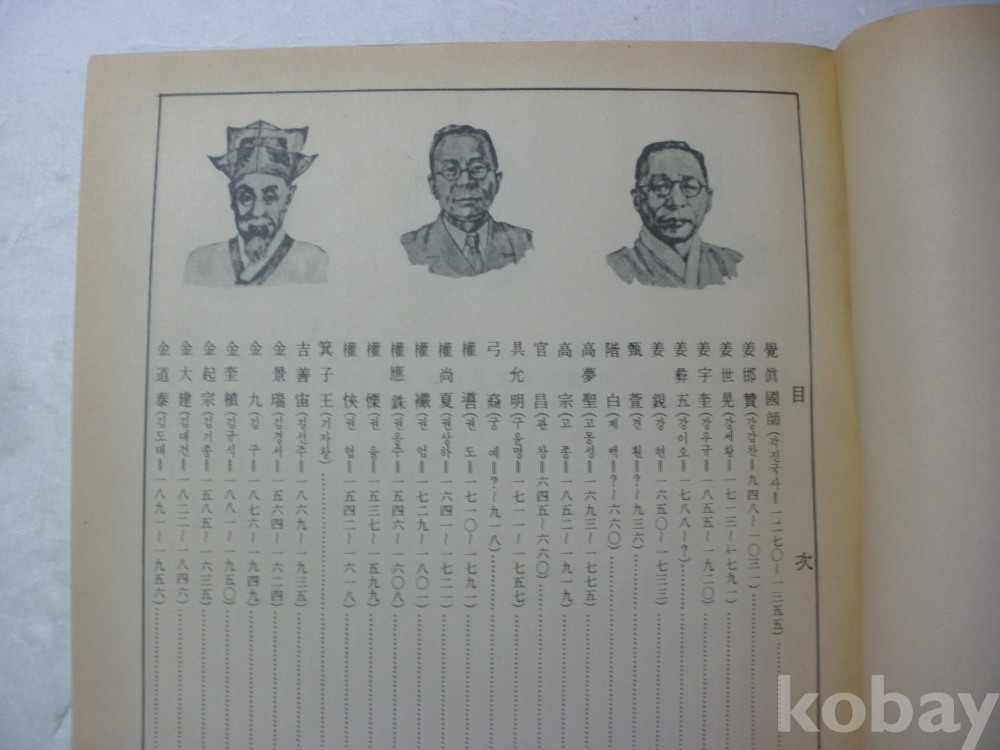 目 次
覺眞國師(각진국사=一二七〇~一三五五)
姜邯贊(강감찬=九四八~一〇三一)
姜世晃(강세황=一七一三~一七九一)
姜宇奎(강우규=一八五五~一九二〇)
姜彛五(강이오=一七八八~?)
姜鋧(강 현=一六五〇~一七三三)
甄萱(견 훤=?~九三六)
階白(계 백=?~六六〇)
高夢聖(고몽성=一六九三~一七七五)
高宗(고 종=一八五二~一九一九)
官昌(관 창=六四五~六六〇)
具允明(구윤명=一七一一~一七五七)
弓裔(궁 예=?~九一八)
權噵(권 도=一七一〇~一七九一)
權尚夏(권상하=一六四一~一七二一)
權襹(권 엄=一七二九~一八〇一)
權應銖(권응수=一五四六~一六〇八)
權慄(권 율=一五三七~一五九九)
權悏(권 협=一五四二~一六一八)
箕子王(기자왕)
吉善宙(길선주=一八六九~一九三五)
金景瑞(김경서=一五六四~一六二四)
金九(김 구=一八七六~一九四九)
金奎植(김규식=一八八一~一九五〇)
金起宗(김기종=一五八五~一六三五)
金大建(김대건=一八二二~一八四六)
金道泰(김도태=一八九一~一九五六)
kobay